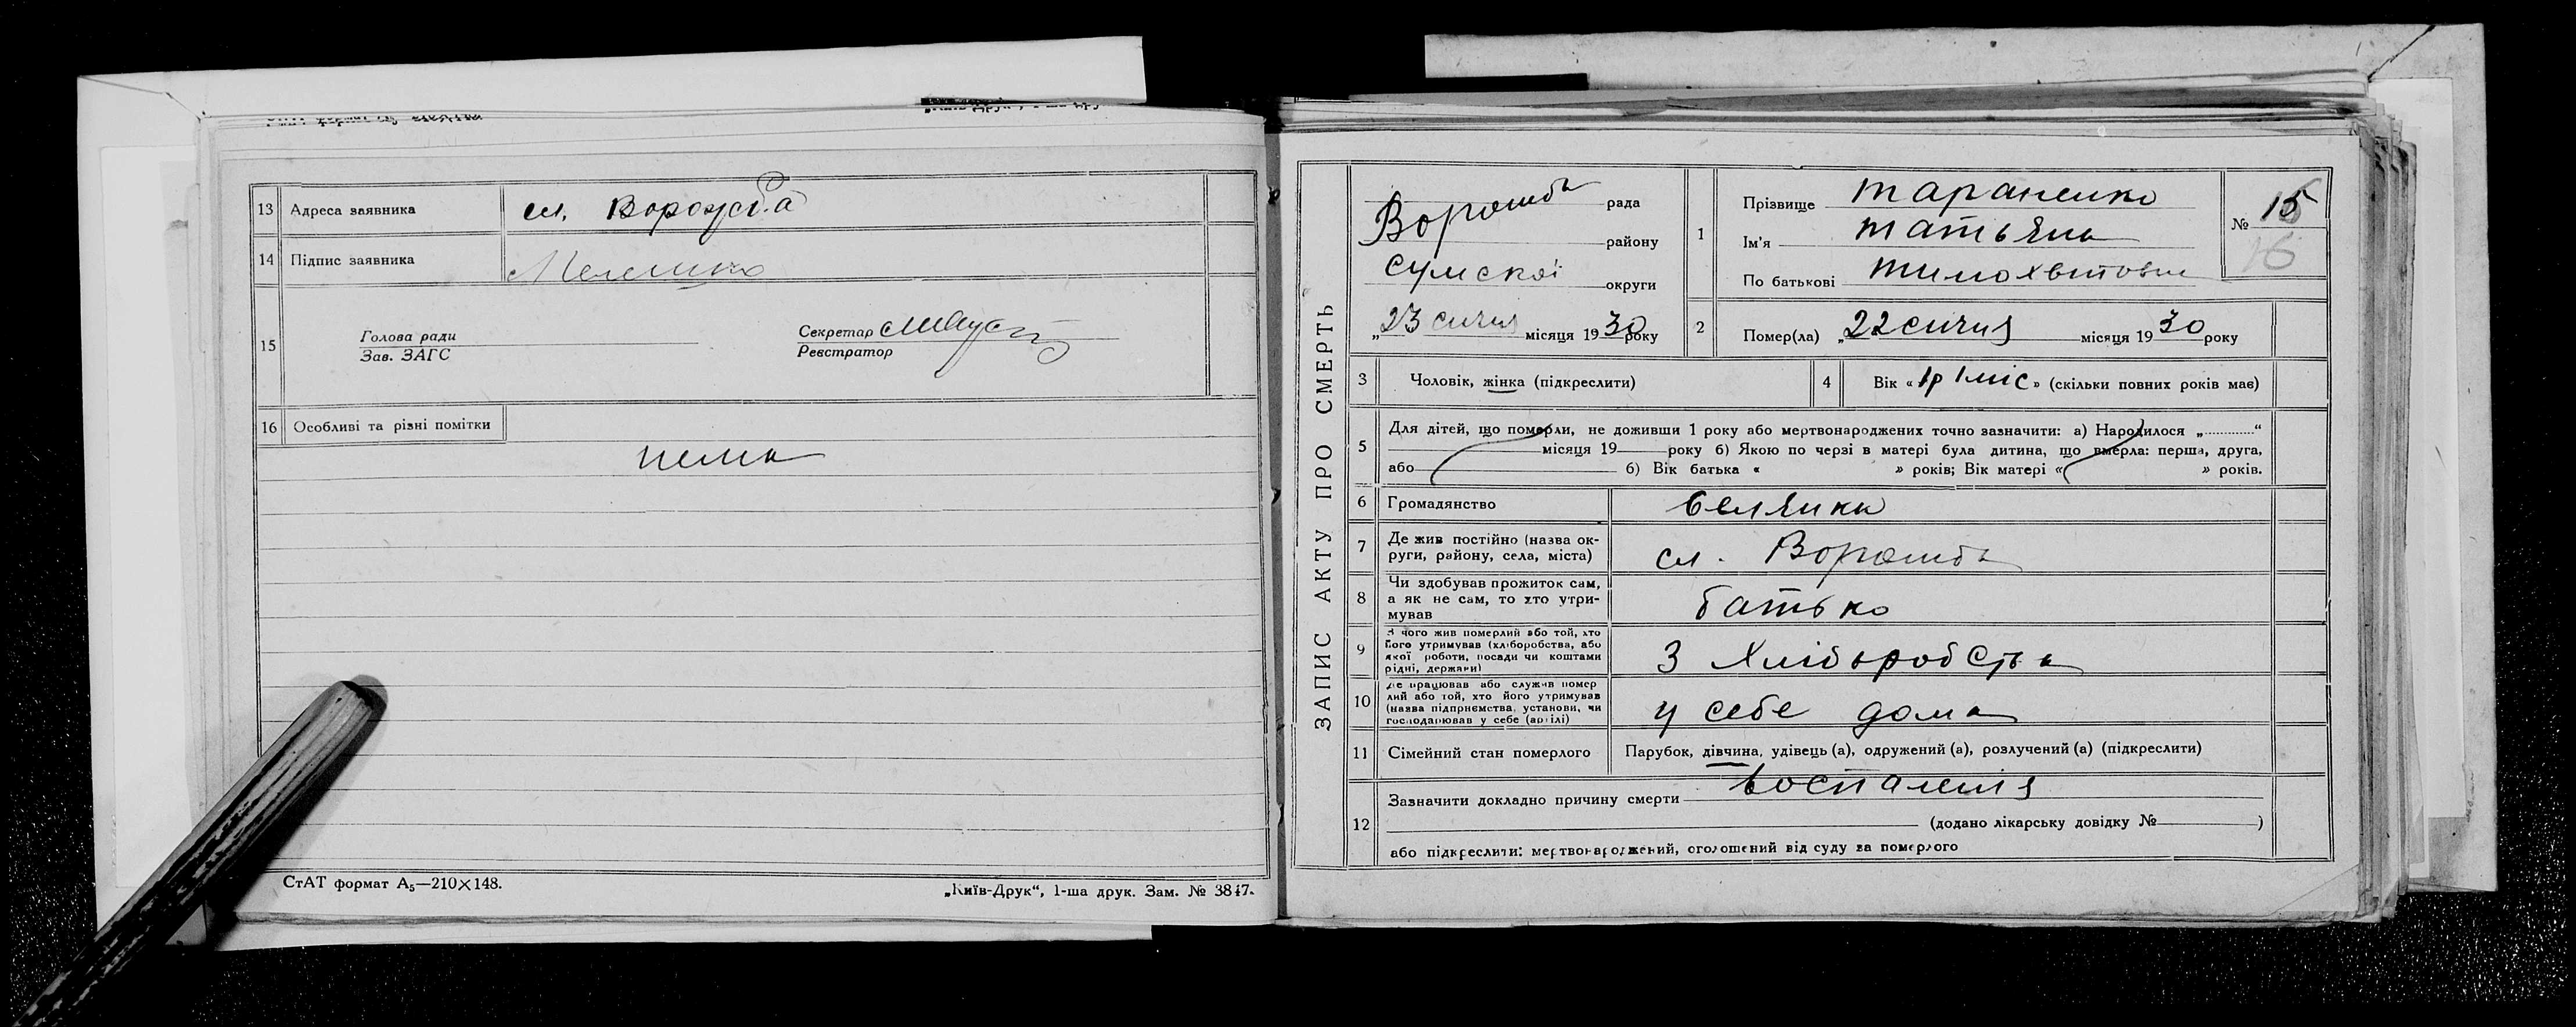 13 Адреса заявника сл. Ворожба
14 Підпис заявника
15 Голова ради
Зав. ЗАГС
Секретар
Реєстратор
16 Особливі та різні помітки
нема
СтАТ формат А₅—210×148.
„Київ-Друк“, 1-ша друк. Зам. № 3847.
ЗАПИС АКТУ ПРО СМЕРТЬ
Ворожба рада
району
Сумскої округи
„23 січня місяця 1930 року
1 Прізвище Тараненко
Ім'я Татьяна
По батькові Тимохвітовна
№ 15
16
2 Помер(ла) „22 січня місяця 1930 року
3 Чоловік, жінка (підкреслити)
4 Вік «1р 1 міс» (скільки повних років мав)
5 Для дітей, що померли, не доживши 1 року або мертвонароджених точно зазначити: а) Народилося „............“
місяця 19 року б) Якою по черзі в матері була дитина, що вмерла: перша, друга,
або б) Вік батька « » років; Вік матері « » років.
6 Громадянство селянка
7 Де жив постійно (назва ок-
руги, району, села, міста) сл. Ворожба
8 Чи здобував прожиток сам,
а як не сам, то хто утри-
мував батько
9 З чого жив померлий або той, хто
його утримував (хліборобства, або
якої роботи, посади чи коштами
рідні, держави) З Хліборобства
10 Де працював або служив помер
лий або той, хто його утримував
(назва підприємства, установи, чи
господарював у себе (артілі) у себе дома
11 Сімейний стан померлого Парубок, дівчина, удівець (а), одружений (а), розлучений (а) (підкреслити)
12 Зазначити докладно причину смерти воспаленія
(додано лікарську довідку № )
або підкреслити: мертвонароджений, оголошений від суду за померлого